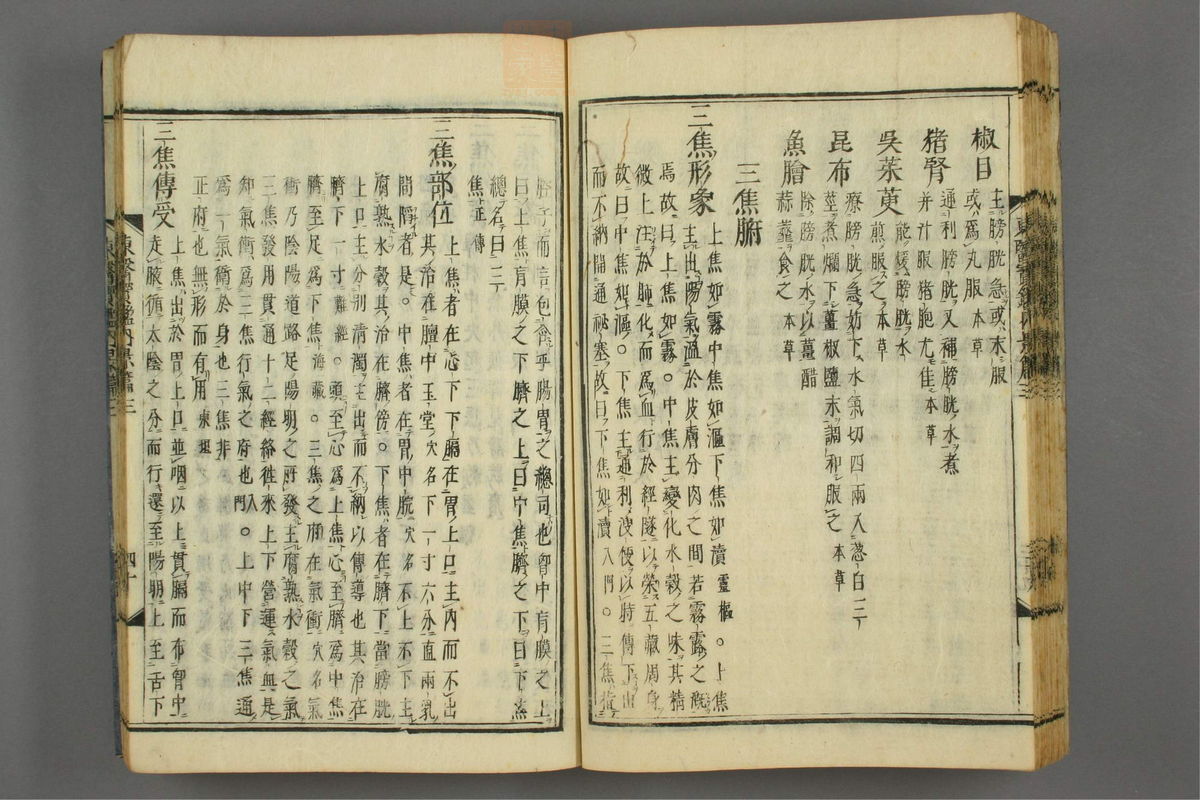 椒目 主膀胱急或末服
或爲丸服本草
猪腎 通利膀胱又補膀胱水煮
并汁服猪胞尤佳本草
吳茱萸 能煖膀胱水
煎服之本草
昆布 療膀胱急妨下水氣切四兩入葱白三
莖煮爛下薑椒鹽末調和服之本草
魚膾 除膀胱水以薑醋
蒜虀食之本草
三焦腑
三焦形象 上焦如霧中焦如漚下焦如瀆靈樞○上焦
主出陽氣溫於皮膚分肉之間若霧露之漑
焉故曰上焦如霧○中焦主變化水穀之味其精
微上注於肺化而爲血行於經隧以榮五藏周身
故曰中焦如漚○下焦主通利溲便以時傳下出
而不納開通秘塞故曰下焦如瀆入門○三焦指
腔子而言包含乎腸胃之總司也胷中肓膜之上
曰上焦肓膜之下臍之上曰中焦臍之下曰下焦
總名曰三
焦正傳
三焦部位 上焦者在心下下膈在胃上口主内而不出
其治在膻中玉堂穴名下一寸六分直兩乳
間陷者是○中焦者在胃中脘穴名不上不下主
腐熟水穀其治在臍傍○下焦者在臍下當膀胱
上口主分別清濁主出而不納以傳導也其治在
臍下一寸難經○頭至心爲上焦心至臍爲中焦
臍至足爲下焦海藏○三焦之府在氣衝穴名氣
衝乃陰陽道路足陽明之所發主腐熟水穀之氣
三焦發用貫通十二經絡往來上下營運氣與是
知氣衝爲三焦行氣之府也入門○上中下三焦通
爲一氣衛於身也三焦非
正府也無形而有用東垣
三焦傳受 上焦出於胃上口並咽以上貫膈而布胷中
走腋循太陰之分而行還至陽明上至舌下
東醫寶鑑內景篇三
四十